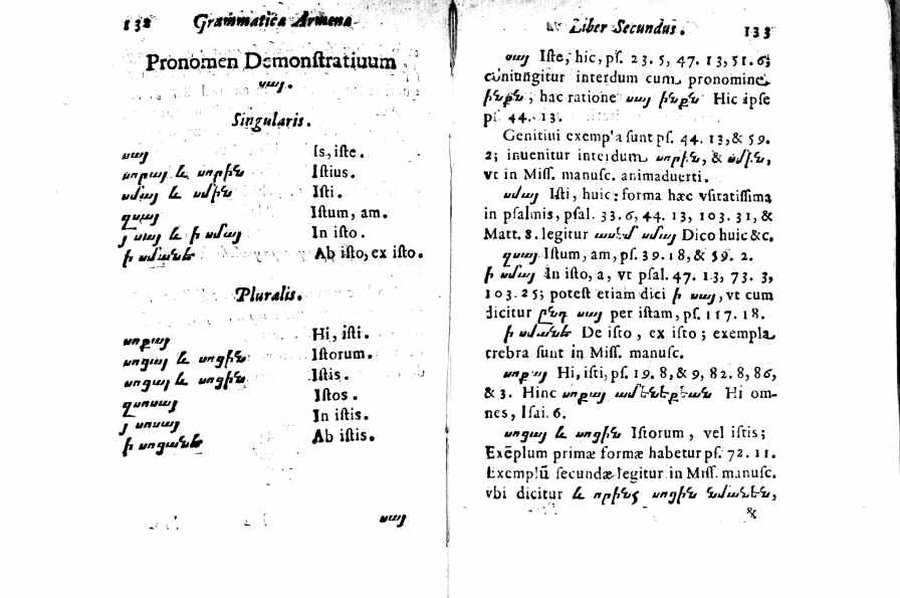 132 Grammatica Armena
Pronomen Demonstratiuum
սայ.
Singularis.
սայ Is, iste.
սորայ և սորին Istius.
սմայ և սմին Isti.
զսայ Istum, am.
յ սմայ և ի սմայ In isto.
ի սմանե Ab isto, ex isto.
Pluralis.
սոքայ Hi, isti.
սոցայ և սոցին Istorum.
սոցայ և սոցին Istis.
զսոսայ Istos.
յ սոսայ In istis.
ի սոցանե Ab istis.
սայ
Liber Secundus. 133
սայ Iste, hic, ps. 23. 5, 47. 13, 51. 6;
coniungitur interdum cum pronomine
ինքն, hac ratione սայ ինքն Hic ipse
ps. 44. 13.
Genitiui exempla sunt ps. 44. 13, & 59.
2; inuenitur interdum սորին, & սմին,
vt in Miss. manusc. animaduerti.
սմայ Isti, huic: forma hæc vsitatissima
in psalmis, psal. 33. 6, 44. 13, 103. 31, &
Matt. 8. legitur ասեմ սմայ Dico huic &c.
զսայ Istum, am, ps. 39. 18, & 59. 2.
ի սմայ In isto, a, vt psal. 47. 13, 73. 3,
103. 25; potest etiam dici ի սայ, vt cum
dicitur ընդ սայ per istam, ps. 117. 18.
ի սմանե De isto, ex isto; exempla
crebra sunt in Miss. manusc.
սոքայ Hi, isti, ps. 19. 8, & 9, 82. 8, 86,
& 3. Hinc սոքայ ամենեքեան Hi om-
nes, Isai. 6.
սոցայ և սոցին Istorum, vel istis;
Exẽplum primæ formæ habetur ps. 72. 11.
Exemplũ secundæ legitur in Miss. manusc.
vbi dicitur և որինչ սոցին նմանեն,
&